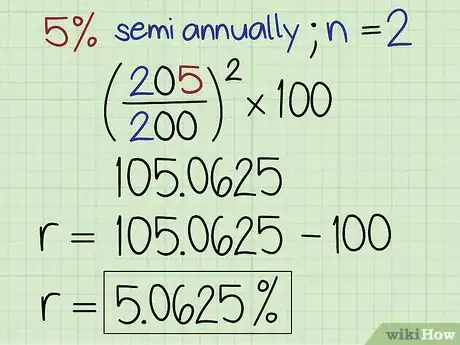 5% semi annually ; n = 2
(205/200)² × 100
105.0625
r = 105.0625 − 100
r = 5.0625%
wikiHow